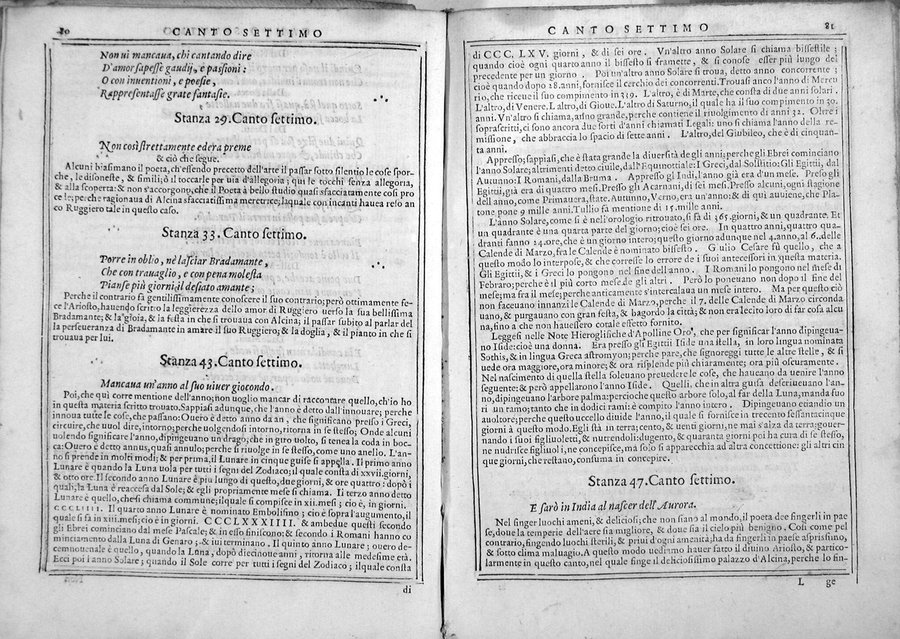 80 CANTO SETTIMO
Non ui mancaua, chi cantando dire
D'amor sapesse gaudij, e passioni:
O con inuentioni, e poesie,
Rappresentasse grate fantasie.
Stanza 29. Canto settimo.
Non così strettamente edera preme
& ciò che segue.
Alcuni biasimano il poeta, ch'essendo precetto dell'arte il passar sotto silentio le cose spor-
che, le disoneste, & simili; ò il toccarle per uia d'allegoria; qui le tocchi senza allegoria,
& alla scoperta: & non s'accorgono, che il Poeta à bello studio quasi sfacciatamente così pro
ce le; perche ragionaua di Alcina sfacciatissima meretrice; laquale con incanti haueua reso an
co Ruggiero tale in questo caso.
Stanza 33. Canto settimo.
Porre in oblio, nè lasciar Bradamante,
Che con trauaglio, e con pena molesta
Pianse più giorni il desiato amante;
Perche il contrario fa gentilissimamente conoscere il suo contrario; però ottimamente fe-
ce l'Ariosto, hauendo scritto la leggierezza dello amor di Ruggiero uerso la sua bellissima
Bradamante; & la gioia, & la festa in che si trouaua con Alcina; il passar subito al parlar del
la perseueranza di Bradamante in amare il suo Ruggiero; & la doglia, & il pianto in che si
trouaua per lui.
Stanza 43. Canto settimo.
Mancaua un'anno al suo uiuer giocondo.
Poi, che qui corre mentione dell'anno; non uoglio mancar di raccontare quello, ch'io ho
in questa materia scritto trouato. Sappiasi adunque, che l'anno è detto dall'innouare; perche
innoua tutte le cose, che passano: Ouero è detto anno da an, che significano presso i Greci,
circuire, che uuol dire, intorno; perche uolgendosi intorno, ritorna in se stesso; Onde alcuni
uolendo significare l'anno, dipingeuano un drago, che in giro uolto, si tenea la coda in boc-
ca: Ouero è detto annus, quasi annulo; perche si riuolge in se stesso, come uno anello. L'an-
no si prende in molti modi; & per prima, il Lunare in cinque guise si appella. Il primo anno
Lunare è quando la Luna uola per tutti i segni del Zodiaco; il quale consta di xxvii. giorni,
& otto ore. Il secondo anno Lunare è più lungo di questo, due giorni, & ore quattro: dopò i
quali, la Luna è reaccesa dal Sole; & egli propriamente mese si chiama. Il terzo anno detto
Lunare è quello, che si chiama commune; ilquale si compisce in xii. mesi; cio è, in giorni.
CCCLIIII. Il quarto anno Lunare è nominato Embolismo; cio è sopra l'augumento, il
quale si fa in xiii. mesi; cio è in giorni. CCCLXXXIIII. & ambedue questi secondo
gli Ebrei cominciano dal mese Pascale; & in esso finiscono: & secondo i Romani hanno co
minciamento dalla Luna di Genaro; & iui terminano. Il quinto anno Lunare; ouero de-
cennouenale è quello, quando la Luna, dopò diecinoue anni, ritorna alle medesime età.
Ecci poi l'anno Solare; quando il Sole corre per tutti i segni del Zodiaco; ilquale consta
di
CANTO SETTIMO 81
di CCC. LXV. giorni, & di sei ore. Vn'altro anno Solare si chiama bissestile;
quando cioè ogni quarto anno il bissesto si framette, & si conose esser più lungo del
precedente per un giorno. Poi un'altro anno Solare si troua, detto anno concorrente;
cioè quando dopo 28. anni, fornisce il cerchio dei concorrenti. Trouasi anco l'anno di Mercu
rio, che riceue il suo compimento in 319. L'altro, è di Marte, che consta di due anni solari.
L'altro, di Venere. L'altro, di Gioue. L'altro di Saturno, il quale ha il suo compimento in 30.
anni. Vn'altro si chiama, anno grande, perche contiene il riuolgimento di anni 32. Oltre i
soprascritti, ci sono ancora due sorti d'anni chiamati Legali: uno si chiama l'anno della re-
missione, che abbraccia lo spacio di sette anni. L'altro, del Giubileo, che è di cinquan-
ta anni.
Appresso, sappiasi, che è stata grande la diuersità de gli anni; perche gli Ebrei cominciano
l'anno Solare; altrimenti detto ciuile, dall'Equinottiale: I Greci, dal Solstitio: Gli Egittii, dal
Autunno: I Romani, dalla Bruma. Appresso gl'Indi, l'anno già era d'un mese. Preso gli
Egittij, già era di quattro mesi. Presso gli Acarnani, di sei mesi. Presso alcuni, ogni stagione
dell'anno, come Primauera, state, Autunno, Verno, era un'anno: & di qui auuiene, che Pla-
tone pone 9 mille anni. Tullio fa mentione di 15. mille anni.
L'anno Solare, come si è nell'orologio ritrouato, si fa di 365. giorni, & un quadrante. Et
un quadrante è una quarta parte del giorno; cioè sei ore. In quattro anni, quattro qua-
dranti fanno 24. ore, che è un giorno intero; questo giorno adunque nel 4. anno, al 6. delle
Calende di Marzo, fra le Calende è nominato bissesto. Giulio Cesare fù quello, che a
questo modo lo interpose, & che corresse lo errore de i suoi antecessori in questa materia.
Gli Egittii, & i Greci lo pongono nel fine dell'anno. I Romani lo pongono nel mese di
Febraro; perche è il più corto mese de gli altri. Però lo poneuano non dopo il fine del
mese; ma fra il mese; perche anticamente s'intercalaua un mese intero. Ma per questo ciò
non faceuano innanzi le Calende di Marzo, perche il 7. delle Calende di Marzo circonda
uano, & purgauano con gran festa, & bagordo la città; & non era lecito loro di far cosa alcu
na, fino a che non hauessero cotale effetto fornito.
Leggesi nelle Note Hieroglifiche d'Apolline Oro, che per significar l'anno dipingeua-
no Iside: cioè una donna. Era presso gli Egittii Iside una stella, in lor lingua nominata
Sothis, & in lingua Greca astromyon; perche pare, che signoreggi tutte le altre stelle, & si
uede ora maggiore, ora minore; & ora risplende più chiaramente; ora più oscuramente.
Nel nascimento di quella stella soleuano preuedere le cose, che haueano da uenire l'anno
seguente: & però appellarono l'anno Iside. Quelli, che in altra guisa descriueuano l'an-
no, dipingeuano l'arbore palma: percioche questo arbore solo, al far della Luna, manda fuo
ri un ramo; tanto che in dodici rami è compito l'anno intero. Dipingeuano eziandio un
auoltore; perche questo uccello diuide l'anno, il quale si fornisce in trecento sessantacinque
giorni à questo modo. Egli stà in terra; cento, & uenti giorni, ne mai s'alza da terra: gouer-
nando i suoi figliuoletti, & nutrendoli: dugento, & quaranta giorni poi ha cura di se stesso,
ne nudrisce figliuoli, ne concepisce, ma solo si apparecchia ad altra concettione: gli altri cin
que giorni, che restano, consuma in concepire.
Stanza 47. Canto settimo.
E sarò in India al nascer dell'Aurora.
Nel finger luochi ameni, & deliciosi; che non siano al mondo, il poeta dee fingerli in pae
se, doue la temperie dell'aere sia migliore, & doue sia il cielo più benigno. Così come pel
contrario, fingendo luochi sterili, & priui d'ogni amenità; ha da fingerli in paese asprissimo,
& sotto clima maluagio. A questo modo uedremo hauer fatto il diuino Ariosto, & partico-
larmente in questo canto, nel quale finge il deliciosissimo palazzo d'Alcina, perche lo fin-
L ge